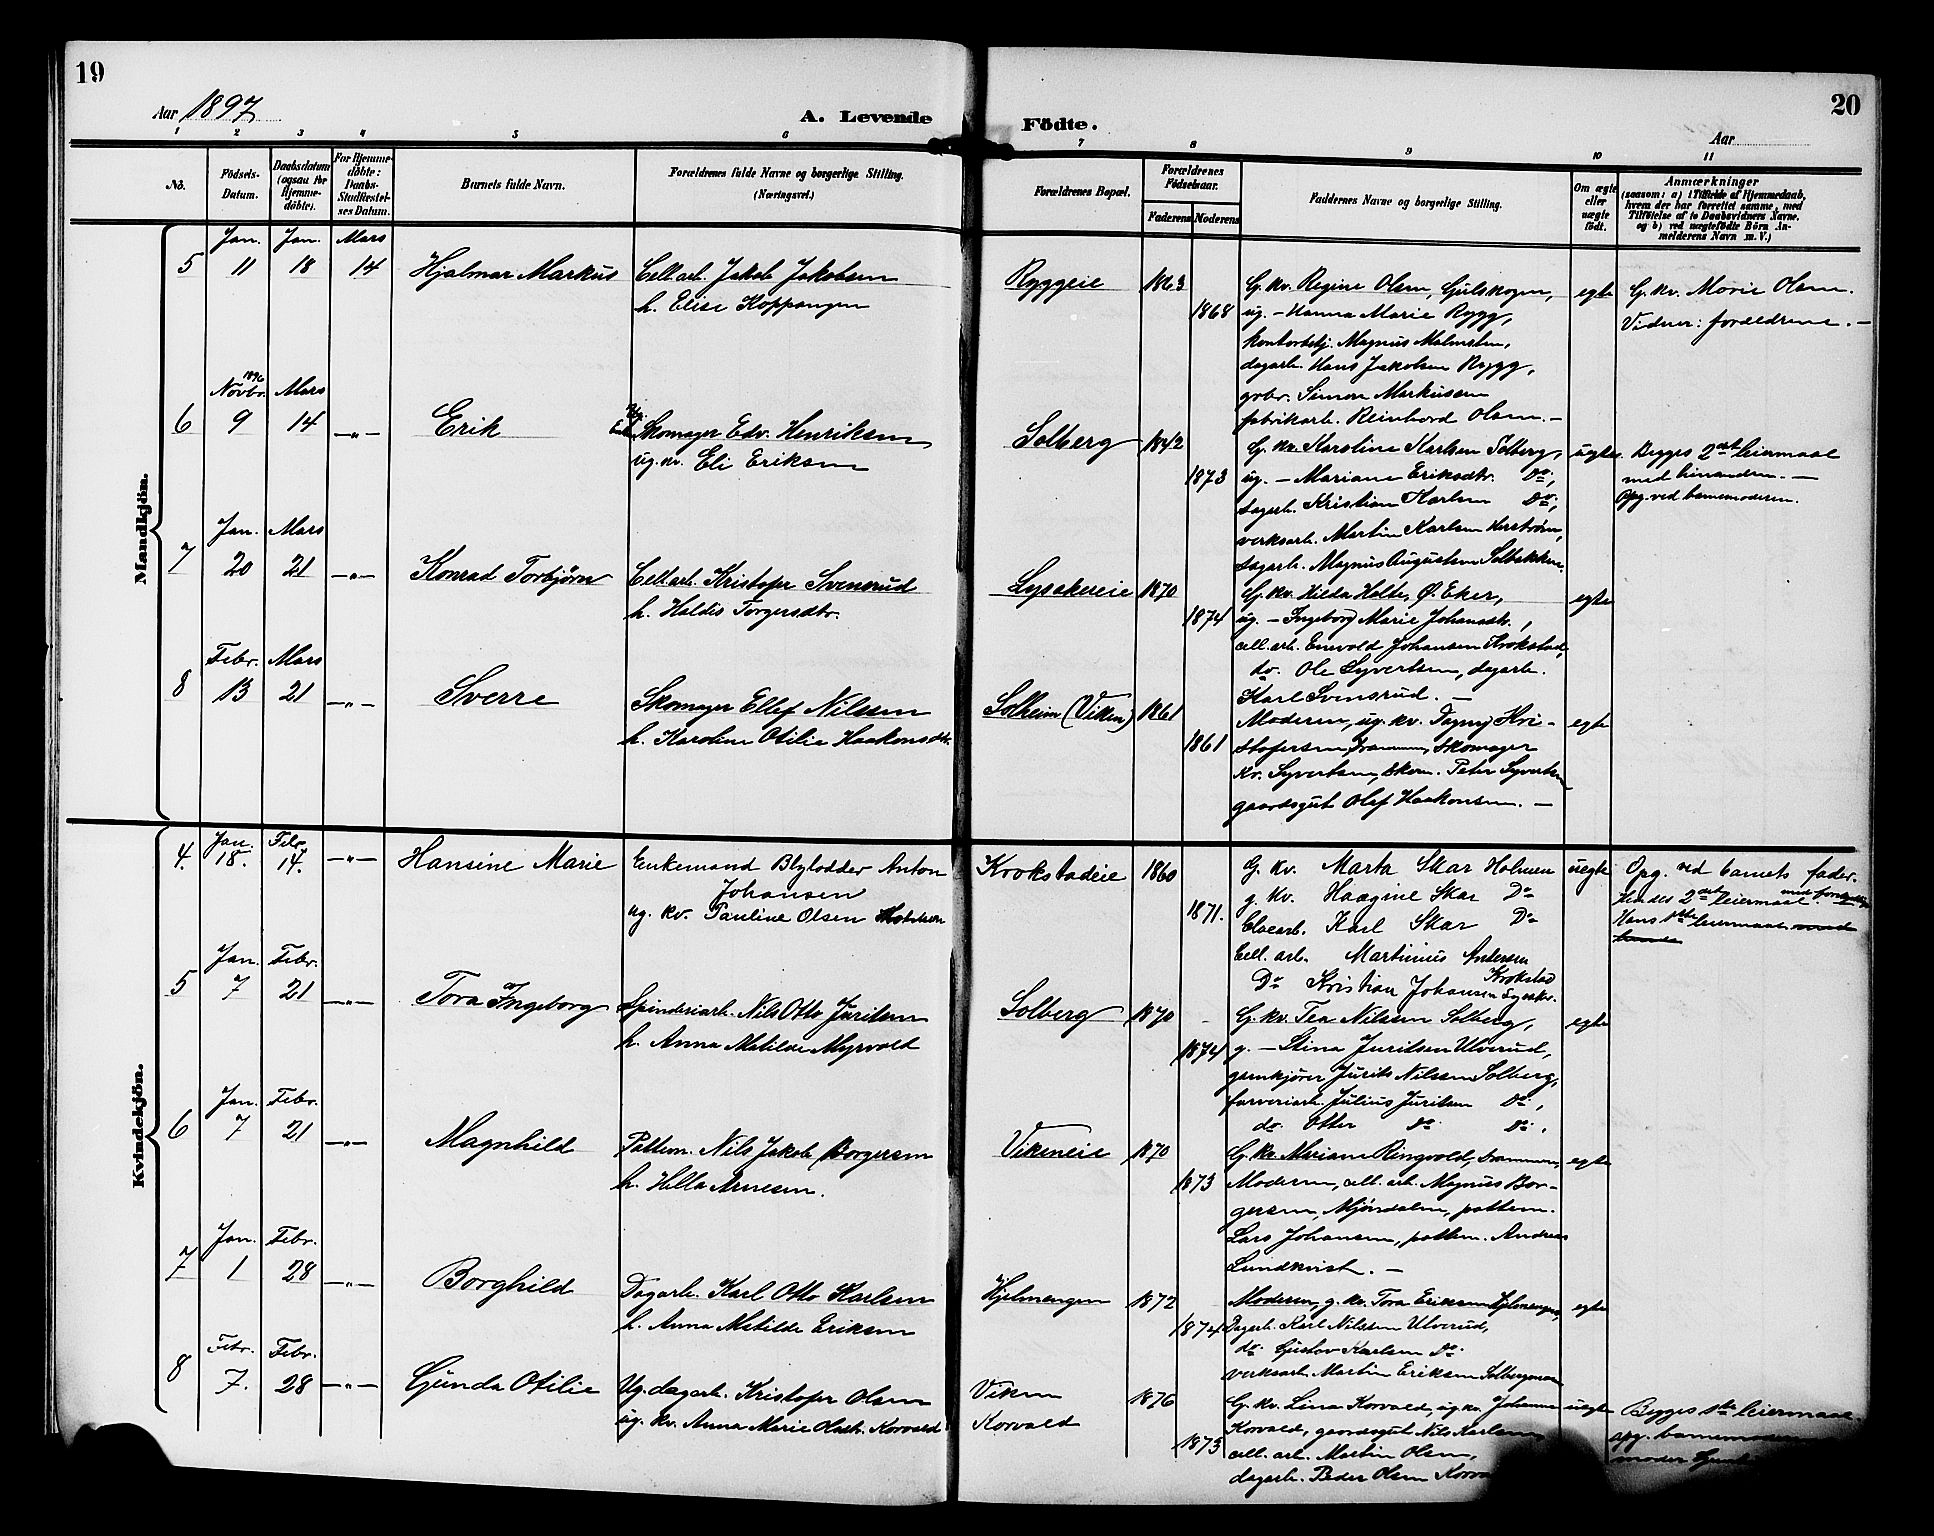 19
20
Aar 1897
A. Levende
Födte.
Aar
1 2 3 4 5 6
7 8 9 10 11
No.
Födsels-Datum.
Daabsdatum (ogsaa for Hjemmedöbte).
For Hjemmedöbte: Daabs-Stadfæstelses Datum.
Barnets fulde Navn.
Forældrenes fulde Navne og borgerlige Stilling. (Næringsvei.)
Forældrenes Bopæl.
Forældrenes Födselsaar.
Faderens
Moderens
Faddernes Navne og borgerlige Stilling.
Om ægte eller uægte födt.
Anmærkninger
(saasom: a) i Tilfælde af Hjemmedaab, hvem der har forrettet samme, med Tilföielse af to Daabsvidners Navne. og b) ved uægtefödte Börn Anmelderens Navn m. V.)
Mandkjön.
5 Jan. 11 Jan. 18 Mars 14 Hjalmar Markus
Cell.arb. Jakob Jakobsen
h. Elise Koppangen
Ryggeie 1863
1868
G. kv. Regine Olsen, Gulskogen,
ug. – Hanna Marie Rygg,
kontorbetj. Magnus Malmsten,
dagarb. Hans Jakobsen Rygg,
gvbr. Simon Markussen
fabrikarb. Reinhard Olsen. –
egte
G. kv. Marie Olsen.
Vidner: forældrene. –
6 Novbr. 1896 9 Mars 14 –"– Erik
Skomager Edv. Henriksen
ug. kv. Eli Eriksen
Solberg 1842
1873
G. kv. Karoline Karlsen Solberg,
ug. – Mariane Eriksdtr. Do,
dagarb. Kristian Karlsen Do,
verksarb. Martin Karlsen
dagarb. Magnus Augustsen Solbakken.
uegte
Begges 2det leiermaal
med hinanden. –
Opg. ved barnemoderen.
7 Jan. 20 Mars 21 –"– Konrad Torbjørn
Cell.arb. Kristofer Svensrud
h. Haldis Torgersdtr.
Lysakereie 1870
1874
G. kv. Hilda Holte, Ø. Eker,
ug. – Ingeborg Marie Johansdtr.,
cell. arb. Enevold Johansen Krokstad,
do. Ole Syvertsen, dagarb.
Karl Svensrud. –
egte
8 Febr. 13 Mars 21 –"– Sverre
Skomager Ellef Nilssen
h. Karoline Otilie Haakonsdtr.
Solheim (Viken) 1861
1861
Moderen, ug. kv. Dagny Kri-
stofersen, Drammen, skomager
Kr. Syvertsen, skom. Peter Syvertsen
gaardsgut Olaf Haakonsen. –
egte
Kvindekjön.
4. Jan. 18. Febr. 14. –"– Hansine Marie
Enkemand Blylodder Anton
Johansen
ug. kv. Pauline Olsen
Krokstadeie 1860
1871.
G. kv. Marta Skar Holmen
g. kv. Haagine Skar Do
Karl Skar Do
Cell. arb. Martinius Andersen
Krokstad
Do Kristian Johansen
uegte
Opg. ved barnets fader.
Hendes 2det leiermaal.
Hans 1ste leiermaal
5 Jan. 7 Febr. 21 –"– Tora Ingeborg
Spinderiarb. Nils Otto Juritsen
h. Anna Matilde Myrvold
Solberg 1870
1874
G. kv. Tea Nilssen Solberg,
g. – Stina Juritsen Ulverud,
garnkjører Jurits Nilssen Solberg,
farveriarb. Julius Juritsen Do,
do. Otter do. Do.
egte
6 Jan. 7 Febr. 21 –"– Magnhild
Pottem. Nils Jakob Borgersen
h. Hella Arnesen.
Vikeneie 1870
1873
G. kv. Mariane Ringvold, Drammen,
Moderen, cell. arb. Magnus Bor-
gersen, Mjøndalen, pottem.
Lars Johansen, pottem. Andreas
Lundkvist. –
egte
7 Jan. 1 Febr. 28 –"– Borghild
Dagarb. Karl Otto Karlsen
h. Anna Matilde Eriksen
Hjelmengen 1872
1874
Moderen, g. kv. Tora Eriksen Hjelmengen,
Dagarb. Karl Nilssen Ulverud,
do. Gustav Karlsen Do.
verksarb. Martin Eriksen
egte
8 Febr. 7. Febr. 28 –"– Gunda Otilie
Ug. dagarb. Kristofer Olsen
ug. kv. Anna Marie Olsdtr. Korvald
Viken
Korvald
1876
1873
G. kv. Lina Korvald, ug. kv. Johanne
Korvald, gaardsgut Nils Karlsen
cell. arb. Martin Olsen,
dagarb. Peder Olsen
uegte
Begges 1ste leiermaal.
opg. barnemoderen
moder